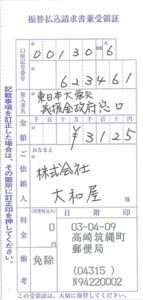 振替払込請求書兼受領証
口座記号番号
00130-6
623461
加入者名
東日本大震災
義援金政府窓口
金額
¥3125
ご依頼人
おなまえ
株式会社
大和屋
料金
(消費税込み)
0
備考
免除
日附印
03-04-09
高崎筑縄町
郵便局
(04315)
N94220002
記載事項を訂正した場合は、その箇所に訂正印を押してください。
この受領証は、大切に保管してください。